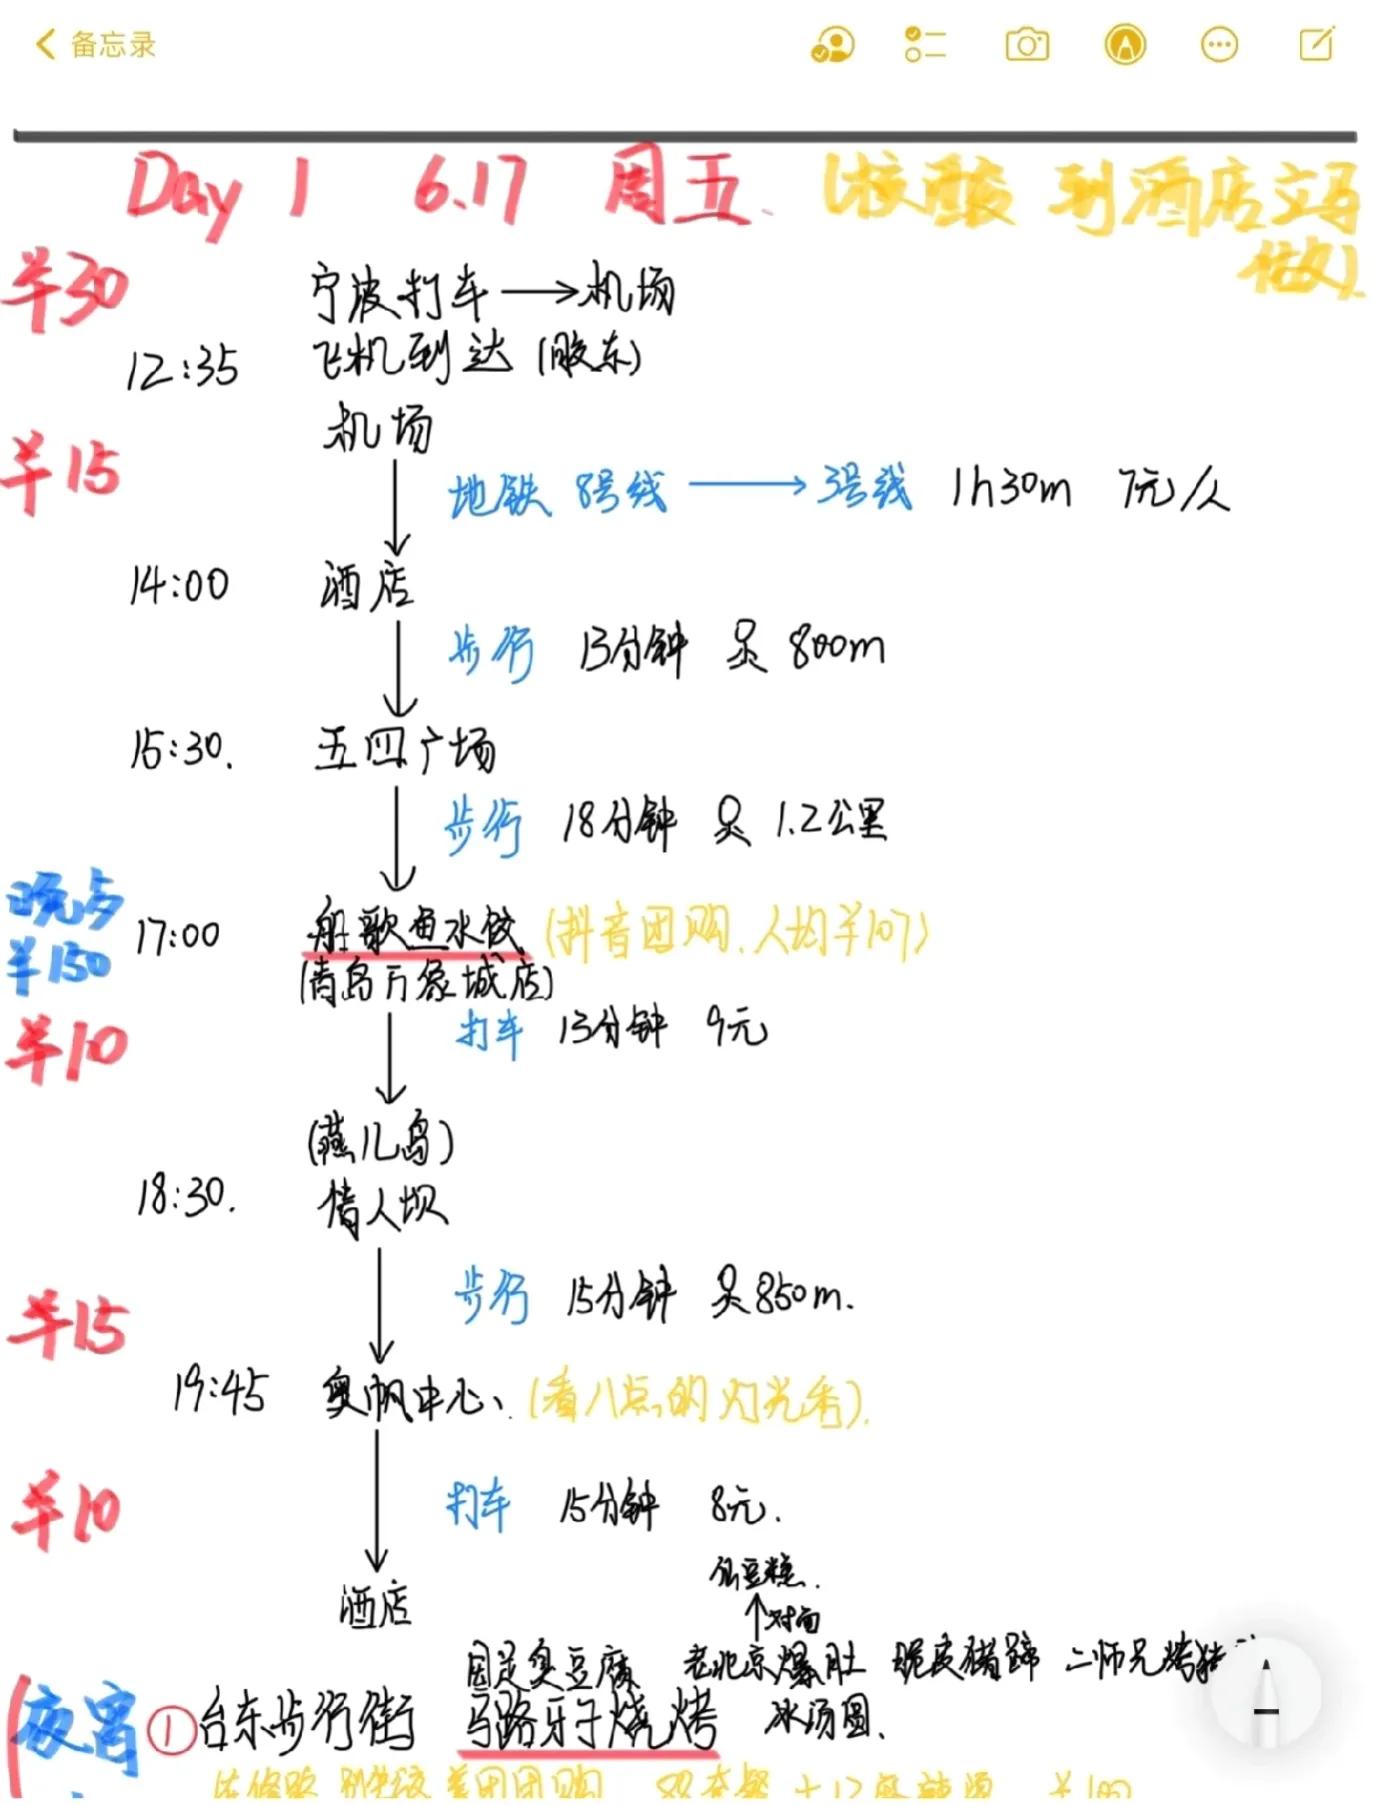 备忘录
Day 1 6.17 周五. (核酸 到酒店立马
做)
¥30 宁波打车→机场
12:35 飞机到达(胶东)
机场
¥15 地铁 8号线→3号线 1h30m 7元/人
14:00 酒店
步行 13分钟 800m
15:30. 五四广场
步行 18分钟 1.2公里
晚点
¥150
17:00 船歌鱼水饺 (抖音团购.人均¥107)
(青岛万象城店)
¥10 打车 13分钟 9元
(燕儿岛)
18:30. 情人坝
¥15 步行 15分钟 850m.
19:45 奥帆中心、(看八点的灯光秀).
¥10 打车 15分钟 8元.
酒店
↑对面
臭豆腐 老北京爆肚 脆皮猪蹄 二师兄烤猪
夜宵 ① 台东步行街 马路牙子烧烤 冰汤圆.
美团团购 双人套餐 ¥100